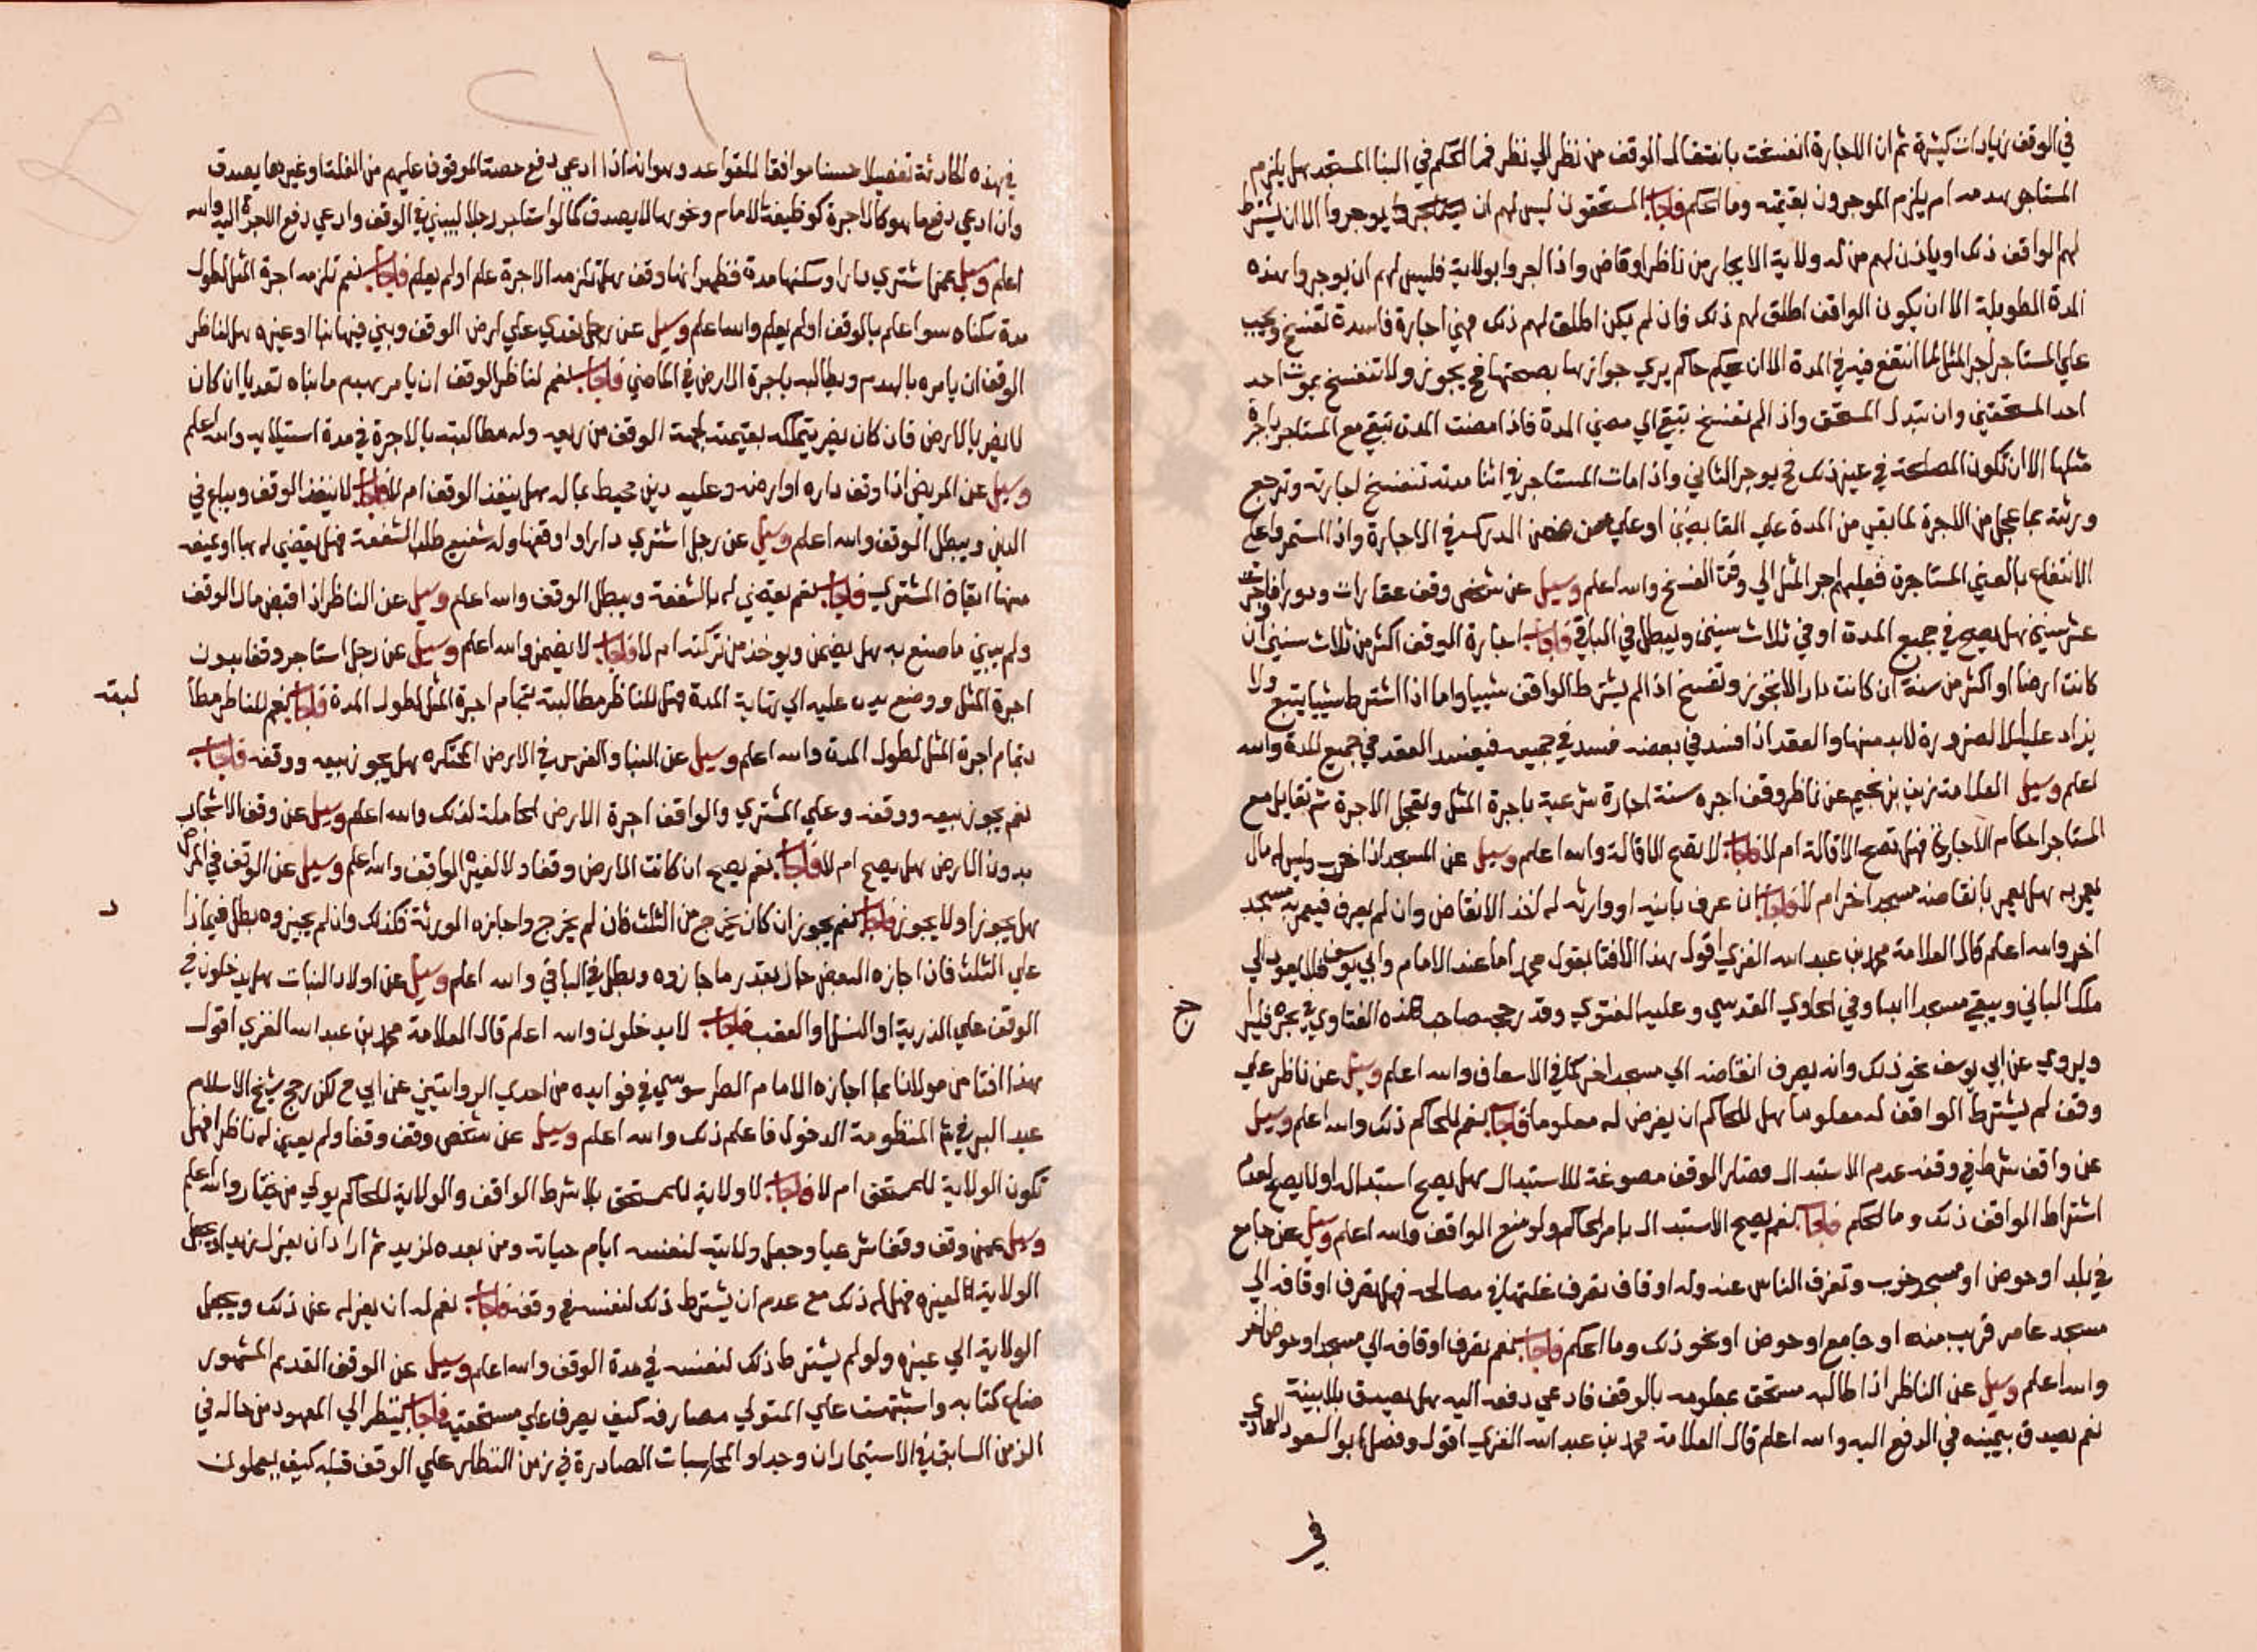 في الوقف زيادات كثيرة ثم ان الاجارة انفسخت بانتقال الوقف من نظر الي نظر فما الحكم في البنا المستجد هل يلزم
المستاجر هدمه ام يلزم الموجرون بقيمته وما الحكم فاجاب المستحقون ليس لهم ان يوجروا الا ان يشترط
لهم الواقف ذلك او ياذن لهم من له ولاية الايجار من ناظر او قاض واذا اجروا بولاية فليس لهم ان يوجروا هذه
المدة الطويلة الا ان يكون الواقف اطلق لهم ذلك فان لم يكن اطلق لهم ذلك فهي اجارة فاسدة تفسخ ويجب
علي المستاجر اجر المثل لما انتفع فيه في المدة الا ان يحكم حاكم يري جوازها بصحتها فح يجوز ولا تنفسخ بموت احد
احد المستحقين وان تبدل المستحق واذا لم تفسخ تبقي الي مضي المدة فاذا مضت المدة تبقي مع المستاجر باجرة
مثلها الا ان تكون المصلحة في غير ذلك فح يوجر الثاني واذا مات المستاجر في اثنا مدته تنفسخ اجارته وترجع
ورثته بما عجل من الاجرة لما بقي من المدة علي القابضين او علي من ضمن الدرك في الاجارة واذا استمروا علي
الانتفاع بالعين المستاجرة فعليهم اجر المثل الي وقت الفسخ والله اعلم وسيل عن شخص وقف عقارات ودورا فاجرت
عشر سنين هل يصح في جميع المدة او في ثلاث سنين ويبطل في الباقي فاجاب اجارة الوقف اكثر من ثلاث سنين ان
كانت ارضا او اكثر من سنة ان كانت دارا لا تجوز وتفسخ اذا لم يشترط الواقف شييا واما اذا اشترط شييا يتبع ولا
يزاد عليه الا لضرورة لابد منها والعقد اذا فسد في بعضه فسد في جميعه فيفسد العقد في جميع المدة والله
اعلم وسيل العلامة زين بن نجيم عن ناظر وقف اجره سنة اجارة شرعية باجرة المثل وتعجل الاجرة ثم تقايل مع
المستاجر احكام الاجارة فهل تصح الاقالة ام لا فاجاب لا تصح الاقالة والله اعلم وسيل عن المسجد اذا خرب وليس له مال
يعمر به هل يعمر بانقاضه مسجد اخر ام لا فاجاب ان عرف بانيه او وارثه له اخذ الانقاض وان لم يعرف فيعمر به مسجد
اخر والله اعلم قال العلامة محمد بن عبد الله الغزي اقول هذا الافتا بقول محمد اما عند الامام وابي يوسف فلا يعود الي
ملك الباني ويبقي مسجدا ابدا وفي الحاوي القدسي وعليه الفتوي وقد رجحه صاحب هذه الفتاوي في بحره فليراجع
ويروي عن ابي يوسف غير ذلك وانه يصرف انقاضه الي مسجد اخر كما في الاسعاف والله اعلم وسيل عن ناظر علي
وقف لم يشترط الواقف له معلوما هل للحاكم ان يفرض له معلوما فاجاب نعم للحاكم ذلك والله اعلم وسيل
عن واقف شرط في وقفه عدم الاستبدال فصار الوقف مصوغة للاستبدال هل يصح استبداله او لا يصح لعدم
اشتراط الواقف ذلك وما الحكم فاجاب نعم يصح الاستبدال بامر الحاكم ولو منع الواقف والله اعلم وسيل عن جامع
في بلد او حوض او مسجد خرب وتفرق الناس عنه وله اوقاف تصرف غلتها في مصالحه فهل تصرف اوقافه الي
مسجد عامر قريب منه او جامع او حوض او نحو ذلك وما الحكم فاجاب نعم تصرف اوقافه الي مسجد او حوض اخر
والله اعلم وسيل عن الناظر اذا طالبه مستحق بمعلومه بالوقف فادعي دفعه اليه هل يصدق بلا بينة
نعم يصدق بيمينه في الدفع اليه والله اعلم قال العلامة محمد بن عبد الله الغزي اقول وفصل ابو السعود العمادي
في
ح
٢١٦
في هذه الحادثة تفصيلا حسنا موافقا للقواعد وهو انه اذا ادعي دفع حصة الموقوف عليهم من الغلة او غيرها يصدق
وان ادعي دفع ما هو كالاجرة كوظيفة الامام ونحوها لا يصدق كما لو استاجر رجلا ليبني في الوقف وادعي دفع الاجرة اليه والله
اعلم وسيل عمن اشتري دارا وسكنها مدة فظهر انها وقف هل تلزمه الاجرة علم او لم يعلم فاجاب نعم تلزمه اجرة المثل لطول
مدة سكناه سوا علم بالوقف او لم يعلم والله اعلم وسيل عن رجل تعدي علي ارض الوقف وبني فيها بنا او غيره هل لناظر
الوقف ان يامره بالهدم ويطالبه باجرة الارض في الماضي فاجاب نعم لناظر الوقف ان يامر بهدم ما بناه تعديا ان كان
لا يضر بالارض فان كان يضر يتملكه بقيمته لجهة الوقف من ريعه وله مطالبته بالاجرة في مدة استيلايه والله اعلم
وسيل عن المريض اذا وقف داره او ارضه وعليه دين محيط بماله هل ينفذ الوقف ام لا فاجاب لا ينفذ الوقف ويباع في
الدين ويبطل الوقف والله اعلم وسيل عن رجل اشتري دارا واوقفها وله شفيع طلب الشفعة فهل يقضي له بها او يمنعه
منها ايقاف المشتري فاجاب نعم يقضي له بالشفعة ويبطل الوقف والله اعلم وسيل عن الناظر اذا قبض مال الوقف
ولم يبين ما صنع به هل يضمن ويوخذ من تركته ام لا فاجاب لا يضمن والله اعلم وسيل عن رجل استاجر وقفا بدون
اجرة المثل ووضع يده عليه الي نهاية المدة فهل للناظر مطالبته بتمام اجرة المثل لطول المدة فاجاب نعم للناظر مطا
لبته
بتمام اجرة المثل لطول المدة والله اعلم وسيل عن البنا والغرس في الارض المحتكره هل يجوز بيعه ووقفه فاجاب
نعم يجوز بيعه ووقفه وعلي المشتري والواقف اجرة الارض الحاملة لذلك والله اعلم وسيل عن وقف الاشجار
بدون الارض هل يصح ام لا فاجاب نعم يصح ان كانت الارض وقفا ولا لغير الواقف والله اعلم وسيل عن الوقف في المرض
هل يجوز او لا يجوز فاجاب نعم يجوز ان كان يخرج من الثلث فان لم يخرج واجازه الورثة فكذلك وان لم يجيزوه بطل فيما زا
د
علي الثلث فان اجازه البعض جاز بقدر ما جازوه وبطل في الباقي والله اعلم وسيل عن اولاد البنات هل يدخلون في
الوقف علي الذرية او النسل او العقب فاجاب لا يدخلون والله اعلم قال العلامة محمد بن عبد الله الغزي اقول
هذا افتا من مولانا بما اجازه الامام الطرسوسي في فوايده من احدي الروايتين عن ابي ح لكن رجح شيخ الاسلام
عبد البر في المنظومة الدخول فاعلم ذلك والله اعلم وسيل عن شخص وقف وقفا ولم يعين له ناظرا فهل
تكون الولاية للمستحق ام لا فاجاب لا ولاية للمستحق بلا شرط الواقف والولاية للحاكم يولي من يختار والله اعلم
وسيل عمن وقف وقفا شرعيا وجعل ولايته لنفسه ايام حياته ومن بعده لزيد ثم اراد ان يعزل زيدا ويجعل
الولاية لغيره فهل له ذلك مع عدم ان يشترط ذلك لنفسه في وقفه فاجاب نعم له ان يعزله عن ذلك ويجعل
الولاية الي غيره ولو لم يشترط ذلك لنفسه في مدة الوقف والله اعلم وسيل عن الوقف القديم المشهور
ضاع كتابه واشتبهت علي المتولي مصارفه كيف يصرف علي مستحقيه فاجاب ينظر الي المعهود من حاله في
الزمن السابق في الاستيماران وجد او المحاسبات الصادرة في زمن النظار علي الوقف قبله كيف يعملون